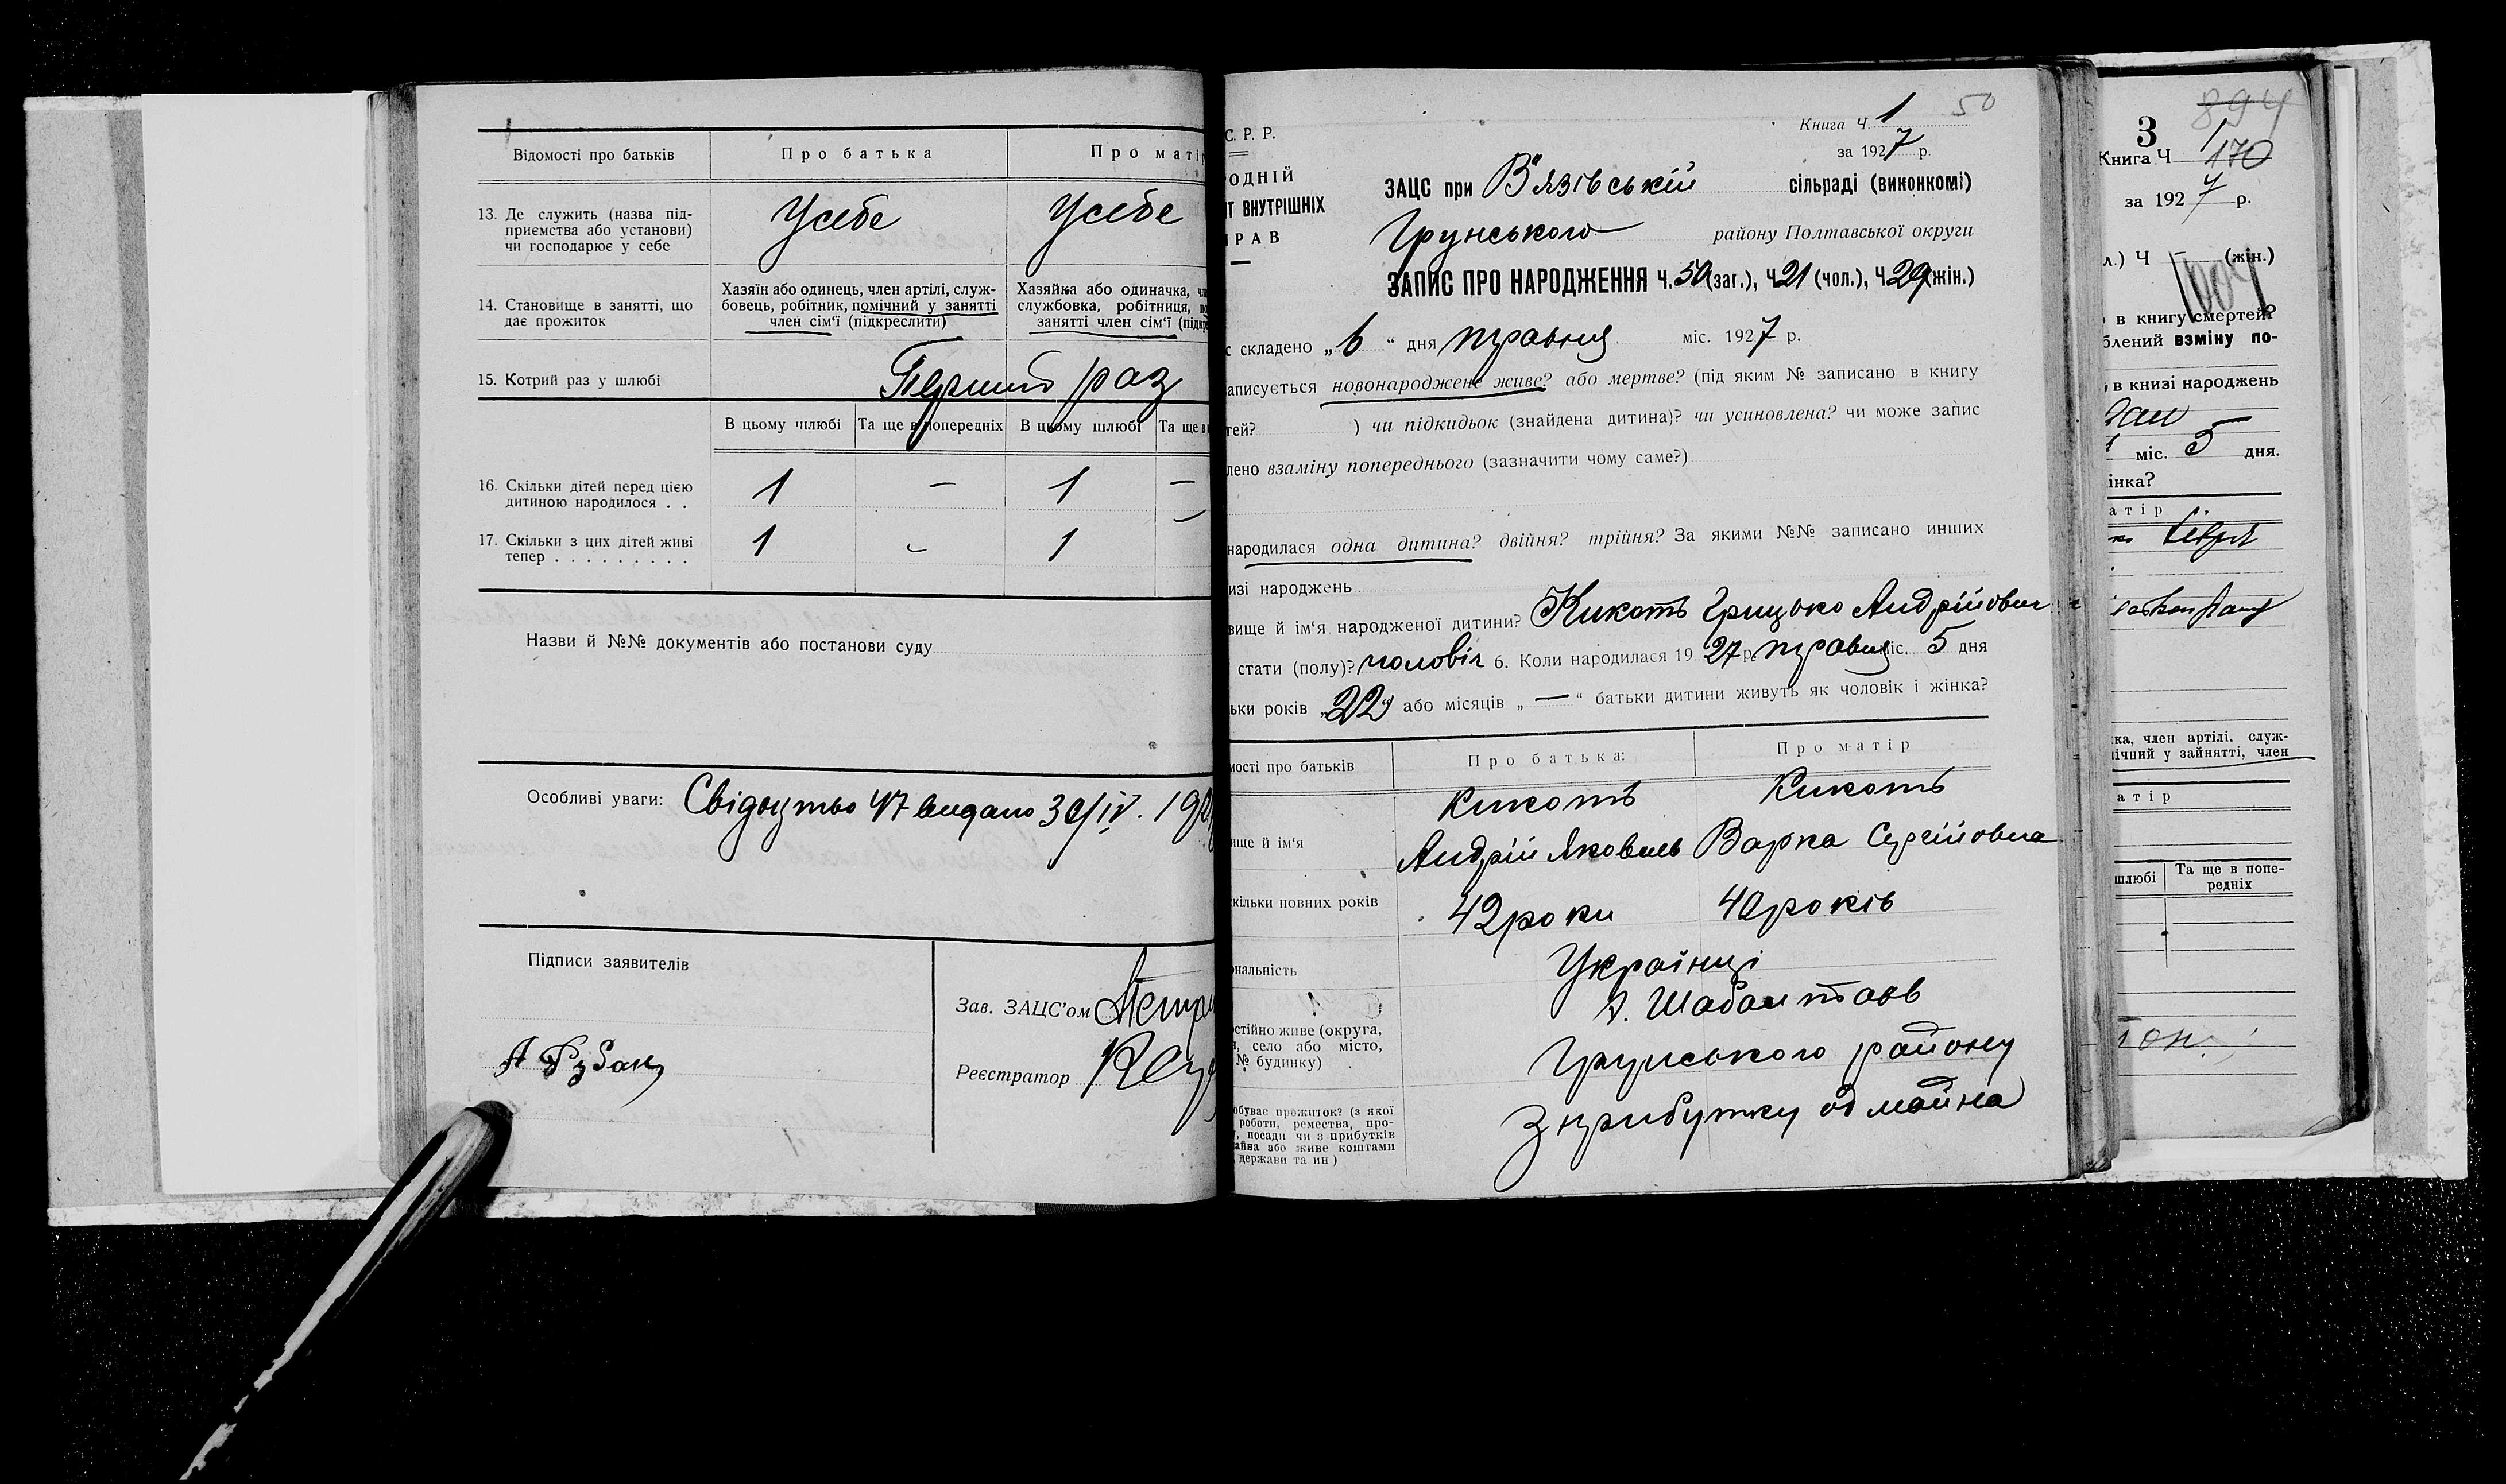 Відомості про батьків
Про батька
Про матір
13. Де служить (назва під-
приємства або установи)
чи господарює у себе
Усебе
Усебе
14. Становище в занятті, що
дає прожиток
Хазяїн або одинець, член артілі, служ-
бовець, робітник, помічний у занятті
член сім'ї (підкреслити)
Хазяйка або одиначка,
службовка, робітниця,
занятті член сім'ї
15. Котрий раз у шлюбі
Перший раз
В цьому шлюбі
Та ще в попередніх
В цьому шлюбі
Та ще в
16. Скільки дітей перед цією
дитиною народилося . .
1 — 1 —
17. Скільки з цих дітей живі
тепер . . . . . . . . .
1 - 1
Назви й №№ документів або постанови суду
Особливі уваги: Свідоцтво 47 видано 30/IV. 19
Підписи заявителів
Зав. ЗАЦС'ом
Реєстратор
50
С. Р. Р.
Книга Ч. 1
за 1927 р.
ВНУТРІШНІХ
ЗАЦС при В'язівській сільраді (виконкомі)
Грунського району Полтавської округи
ЗАПИС ПРО НАРОДЖЕННЯ Ч. 50 (заг.), Ч. 21 (чол.), Ч. 29 (жін.)
складено „6“ дня травня міс. 1927 р.
новонароджене живе? або мертве? (під яким № записано в книгу
) чи підкидьок (знайдена дитина)? чи усиновлена? чи може запис
взаміну попереднього (зазначити чому саме?)
народилася одна дитина? двійня? трійня? За якими №№ записано инших
народжень
й ім'я народженої дитини? Кикоть Грицько Андрійович
стати (полу)? чоловіч 6. Коли народилася 1927 р. травня міс. 5 дня
років „22“ або місяців „—“ батьки дитини живуть як чоловік і жінка?
про батьків
Про батька:
Про матір
й ім'я
Кикоть
Кикоть
Андрій Яковлев
Варка Сергійовна
повних років
42 роки
40 років
Українці
живе (округа,
село або місто,
№ будинку)
Грунського району
прожиток? (з якої
роботи, ремества, про-
посади чи з прибутків
або живе коштами
держави та ин)
З прибутку од майна
894
3
Книга Ч 1
170
за 1927 р.
Ч (жін.)
в книгу смертей?
взміну по-
в книзі народжень
міс. 5 дня.
член артілі, служ-
у зайнятті, член
шлюбі
Та ще в попе-
редніх